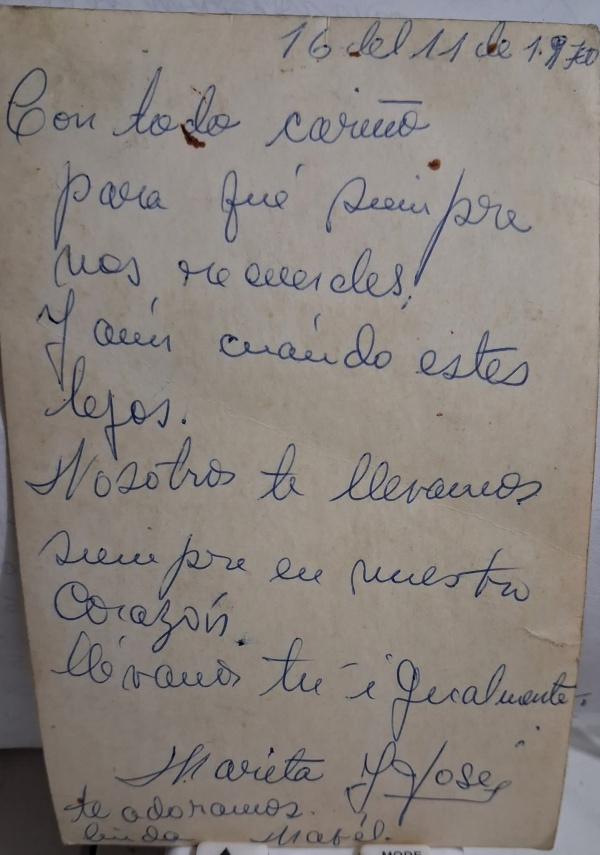 16 del 11 de 1.970
Con todo cariño
para qué siempre
nos recuerdes,
Y aún cuándo estes
lejos.
Nosotros te llevamos
siempre en nuestro
Corazón.
llévanos tu igualmente.
Marieta Y Jose
te adoramos.
linda Mabél.
MODE